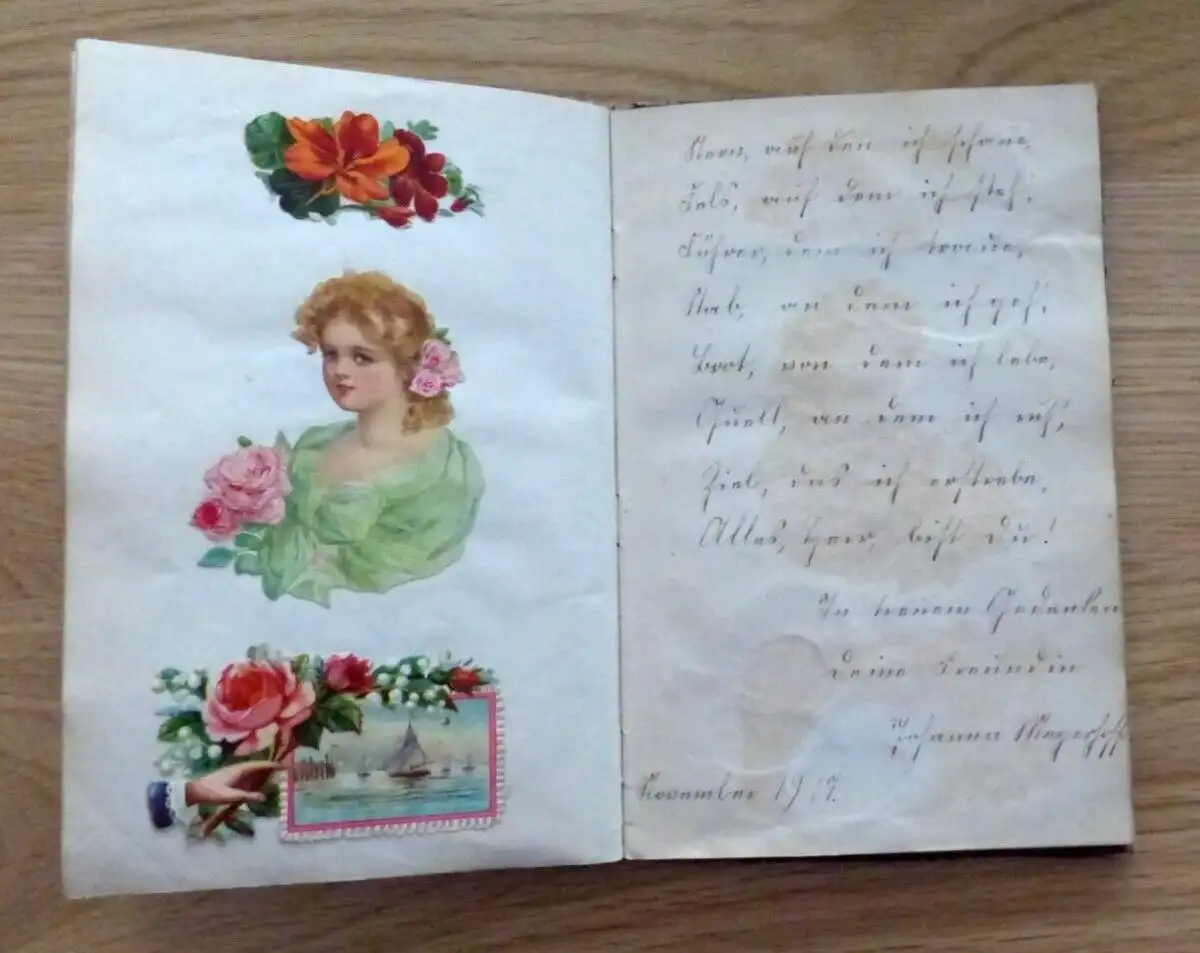 Stern, auf den ich schaue,
Fels, auf dem ich steh',
Führer, dem ich traue,
Stab, an dem ich geh',
Brot, von dem ich lebe,
Quell, an dem ich ruh',
Ziel, das ich erstrebe,
Alles, Herr, bist Du!
In treuem Gedenken
Deine Freundin
Johanna
November 1917.